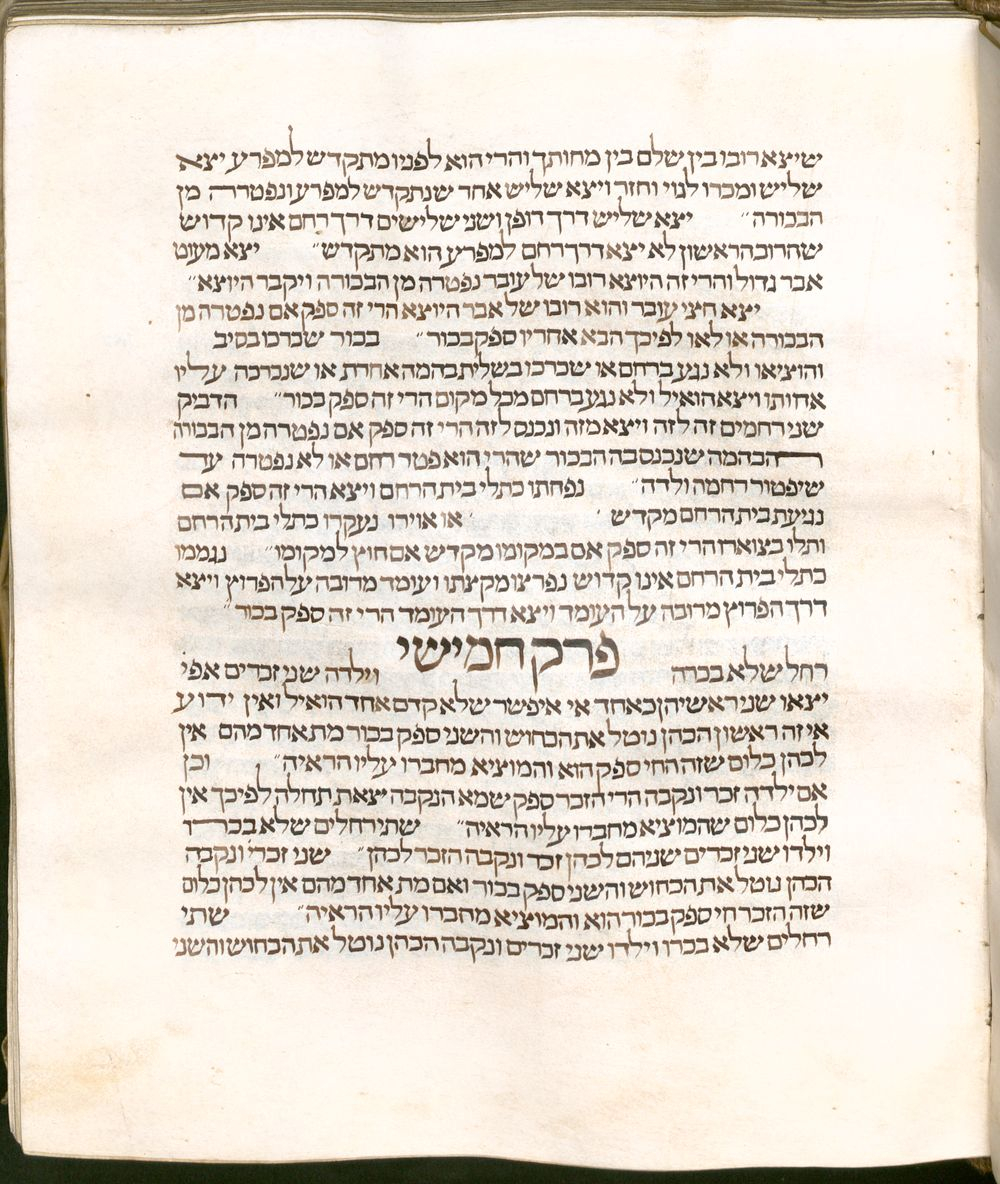 שיצא רובו בין שלם בין מחותך והרי הוא לפנינו מתקדש למפרע יצא
שליש ומכרו לגוי וחזר ויצא שליש אחר שנתקדש למפרע ונפטרה מן
הבכורה״ יצא שליש דרך דופן ושני שלישים דרך רחם אינו קדוש
שהרובה הראשון לא יצא דרך רחם למפרע הוא מתקדש״ יצא מעוט
אבר גדול והרי זה היוצא רובו של עובר נפטרה מן הבכורה ויקבר היוצא״
יצא חצי עובר והוא רובו של אבר היוצא הרי זה ספק אם נפטרה מן
הבכורה או לאו לפיכך הבא אחריו ספק בכור״ בכור שכרכו בסיב
והוציאו ולא נגע ברחם או שכרכו בשלית בהמה אחרת או שנכרכה עליו
אחותו ויצא הואיל ולא נגע ברחם מכל מקום הרי זה ספק בכור״ הדביק
שני רחמים זה לזה ויצא מזה ונכנס לזה הרי זה ספק אם נפטרה מן הבכורה
הבהמה שנכנס בה הבכור שהרי הוא פטר רחם או לא נפטרה עד
שיפטור רחמה ולדה״ נפחתו כתלי בית הרחם ויצא הרי זה ספק אם
נגיעת בית הרחם מקדש או אוירו נעקרו כתלי בית הרחם
ותלו בצוארו הרי זה ספק אם במקומו מקדש אם חוץ למקומו״ נגממו
כתלי בית הרחם אינו קדוש נפרצו מקצתו ועומד מרובה על הפרוץ ויצא
דרך הפרוץ מרובה על העומד ויצא דרך העומד הרי זה ספק בכור״
פרק חמישי
רחל שלא בכרה וילדה שני זכרים אפי
יצאו שני ראשיהן כאחד אי איפשר שלא קדם אחד הואיל ואין ידוע
אי זה ראשון הכהן נוטל את הכחוש והשני ספק בכור מת אחד מהם אין
לכהן כלום שזה החי ספק הוא והמוציא מחברו עליו הראיה״ וכן
אם ילדה זכר ונקבה הרי הזכר ספק שמא הנקבה יצאת תחלה לפיכך אין
לכהן כלום שהמוציא מחברו עליו הראיה״ שתי רחלים שלא בכרו
וילדו שני זכרים שניהם לכהן זכר ונקבה הזכר לכהן״ שני זכרי׳ ונקבה
הכהן נוטל את הכחוש והשני ספק בכור ואם מת אחד מהם אין לכהן כלום
שזה הזכר חי ספק בכור הוא והמוציא מחברו עליו הראיה״ שתי
רחלים שלא בכרו וילדו שני זכרים ונקבה הכהן נוטל את הכחוש והשני